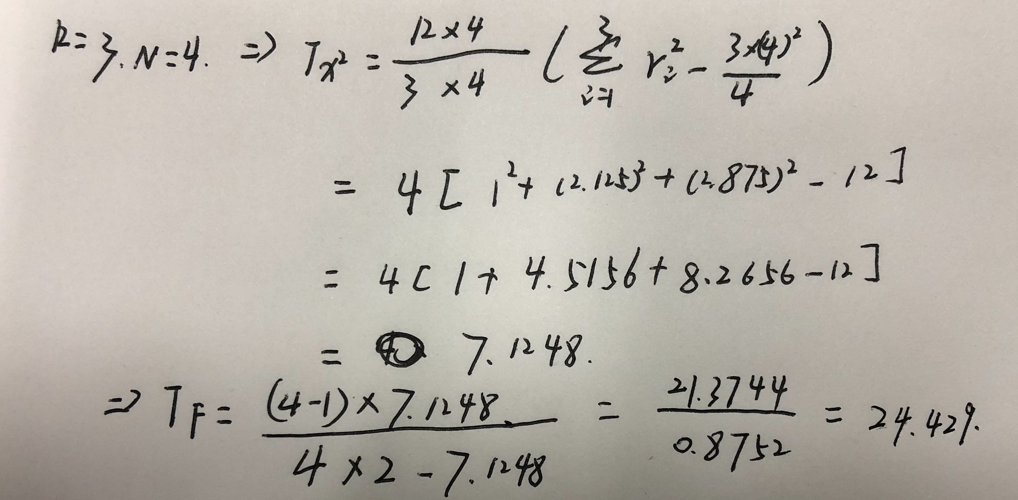 k=3, N=4. ⇒ T_{x²} = \frac{12×4}{3×4} ( \sum_{i=1}^{3} r_i^2 - \frac{3×(4)^2}{4} )
= 4 [ 1^2 + (2.125)^2 + (2.875)^2 - 12 ]
= 4 [ 1 + 4.5156 + 8.2656 - 12 ]
= 7.1248.
⇒ T_F = \frac{(4-1)×7.1248}{4×2-7.1248} = \frac{21.3744}{0.8752} = 24.429.